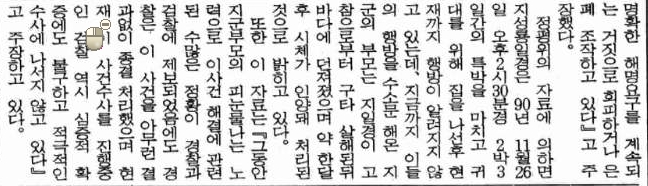 명확한 해명요구를 계속되
는 거짓으로 회피하거나 은
폐 조작하고 있다』고 주
장했다.
정평위의 자료에 의하면
지성룡일경은 90년 11월26
일 오후2시30분경 2박3
일간의 특박을 마치고 귀
대를 위해 집을 나선후 현
재까지 행방이 알려지지 않
고 있는데, 지금까지 이들
의 행방을 수소문 해온 지
군의 부모는 지일경이 고
참으로부터 구타 살해된뒤
바다에 던져졌으며 약 한달
후 시체가 인양돼 처리된
것으로 밝히고 있다.
또한 이 자료는 『그동안
지군부모의 피눈물나는 노
력으로 이사건 해결에 관련
된 수많은 정황이 경찰과
검찰에 제보되었음에도 경
찰은 이 사건을 아무런 결
과없이 종결 처리했으며 현
재 사건수사를 진행중
인 검찰 역시 실증적 확
증에도 불구하고 적극적인
수사에 나서지 않고 있다』
고 주장하고 있다.